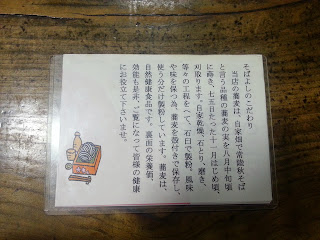 そばよしのこだわり
当店の蕎麦は、自家畑で常陸秋そば
と言う品種の蕎麦の実を八月中旬頃
に蒔き、七五日たった十一月はじめ頃、
刈取ります。自家乾燥、石とり、磨き、
等々の工程をへて、石臼で製粉。風味
や味を保つ為、蕎麦を殻付きで保存し、
使う分だけ製粉しています。蕎麦は、
自然健康食品です。裏面の栄養価、
効能も是非、ご覧になって皆様の健康
にお役立て下さいませ。